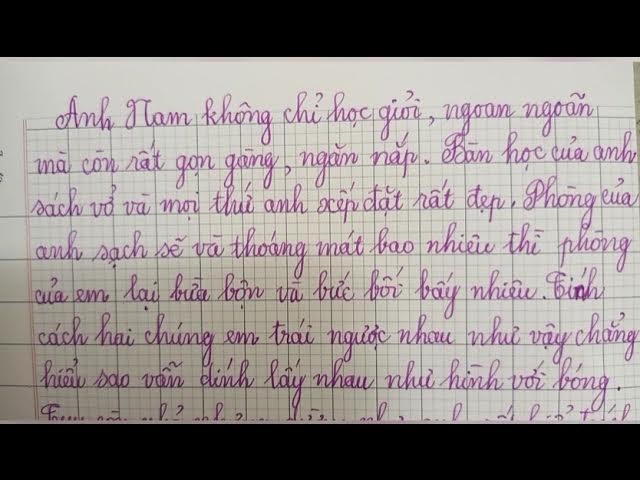 Anh Nam không chỉ học giỏi, ngoan ngoãn
mà còn rất gọn gàng, ngăn nắp. Bàn học của anh
sách vở và mọi thứ anh xếp đặt rất đẹp. Phòng của
anh sạch sẽ và thoáng mát bao nhiêu thì phòng
của em lại bừa bộn và bức bối bấy nhiêu. Tính
cách hai chúng em trái ngược nhau như vậy chẳng
hiểu sao vẫn dính lấy nhau như hình với bóng.